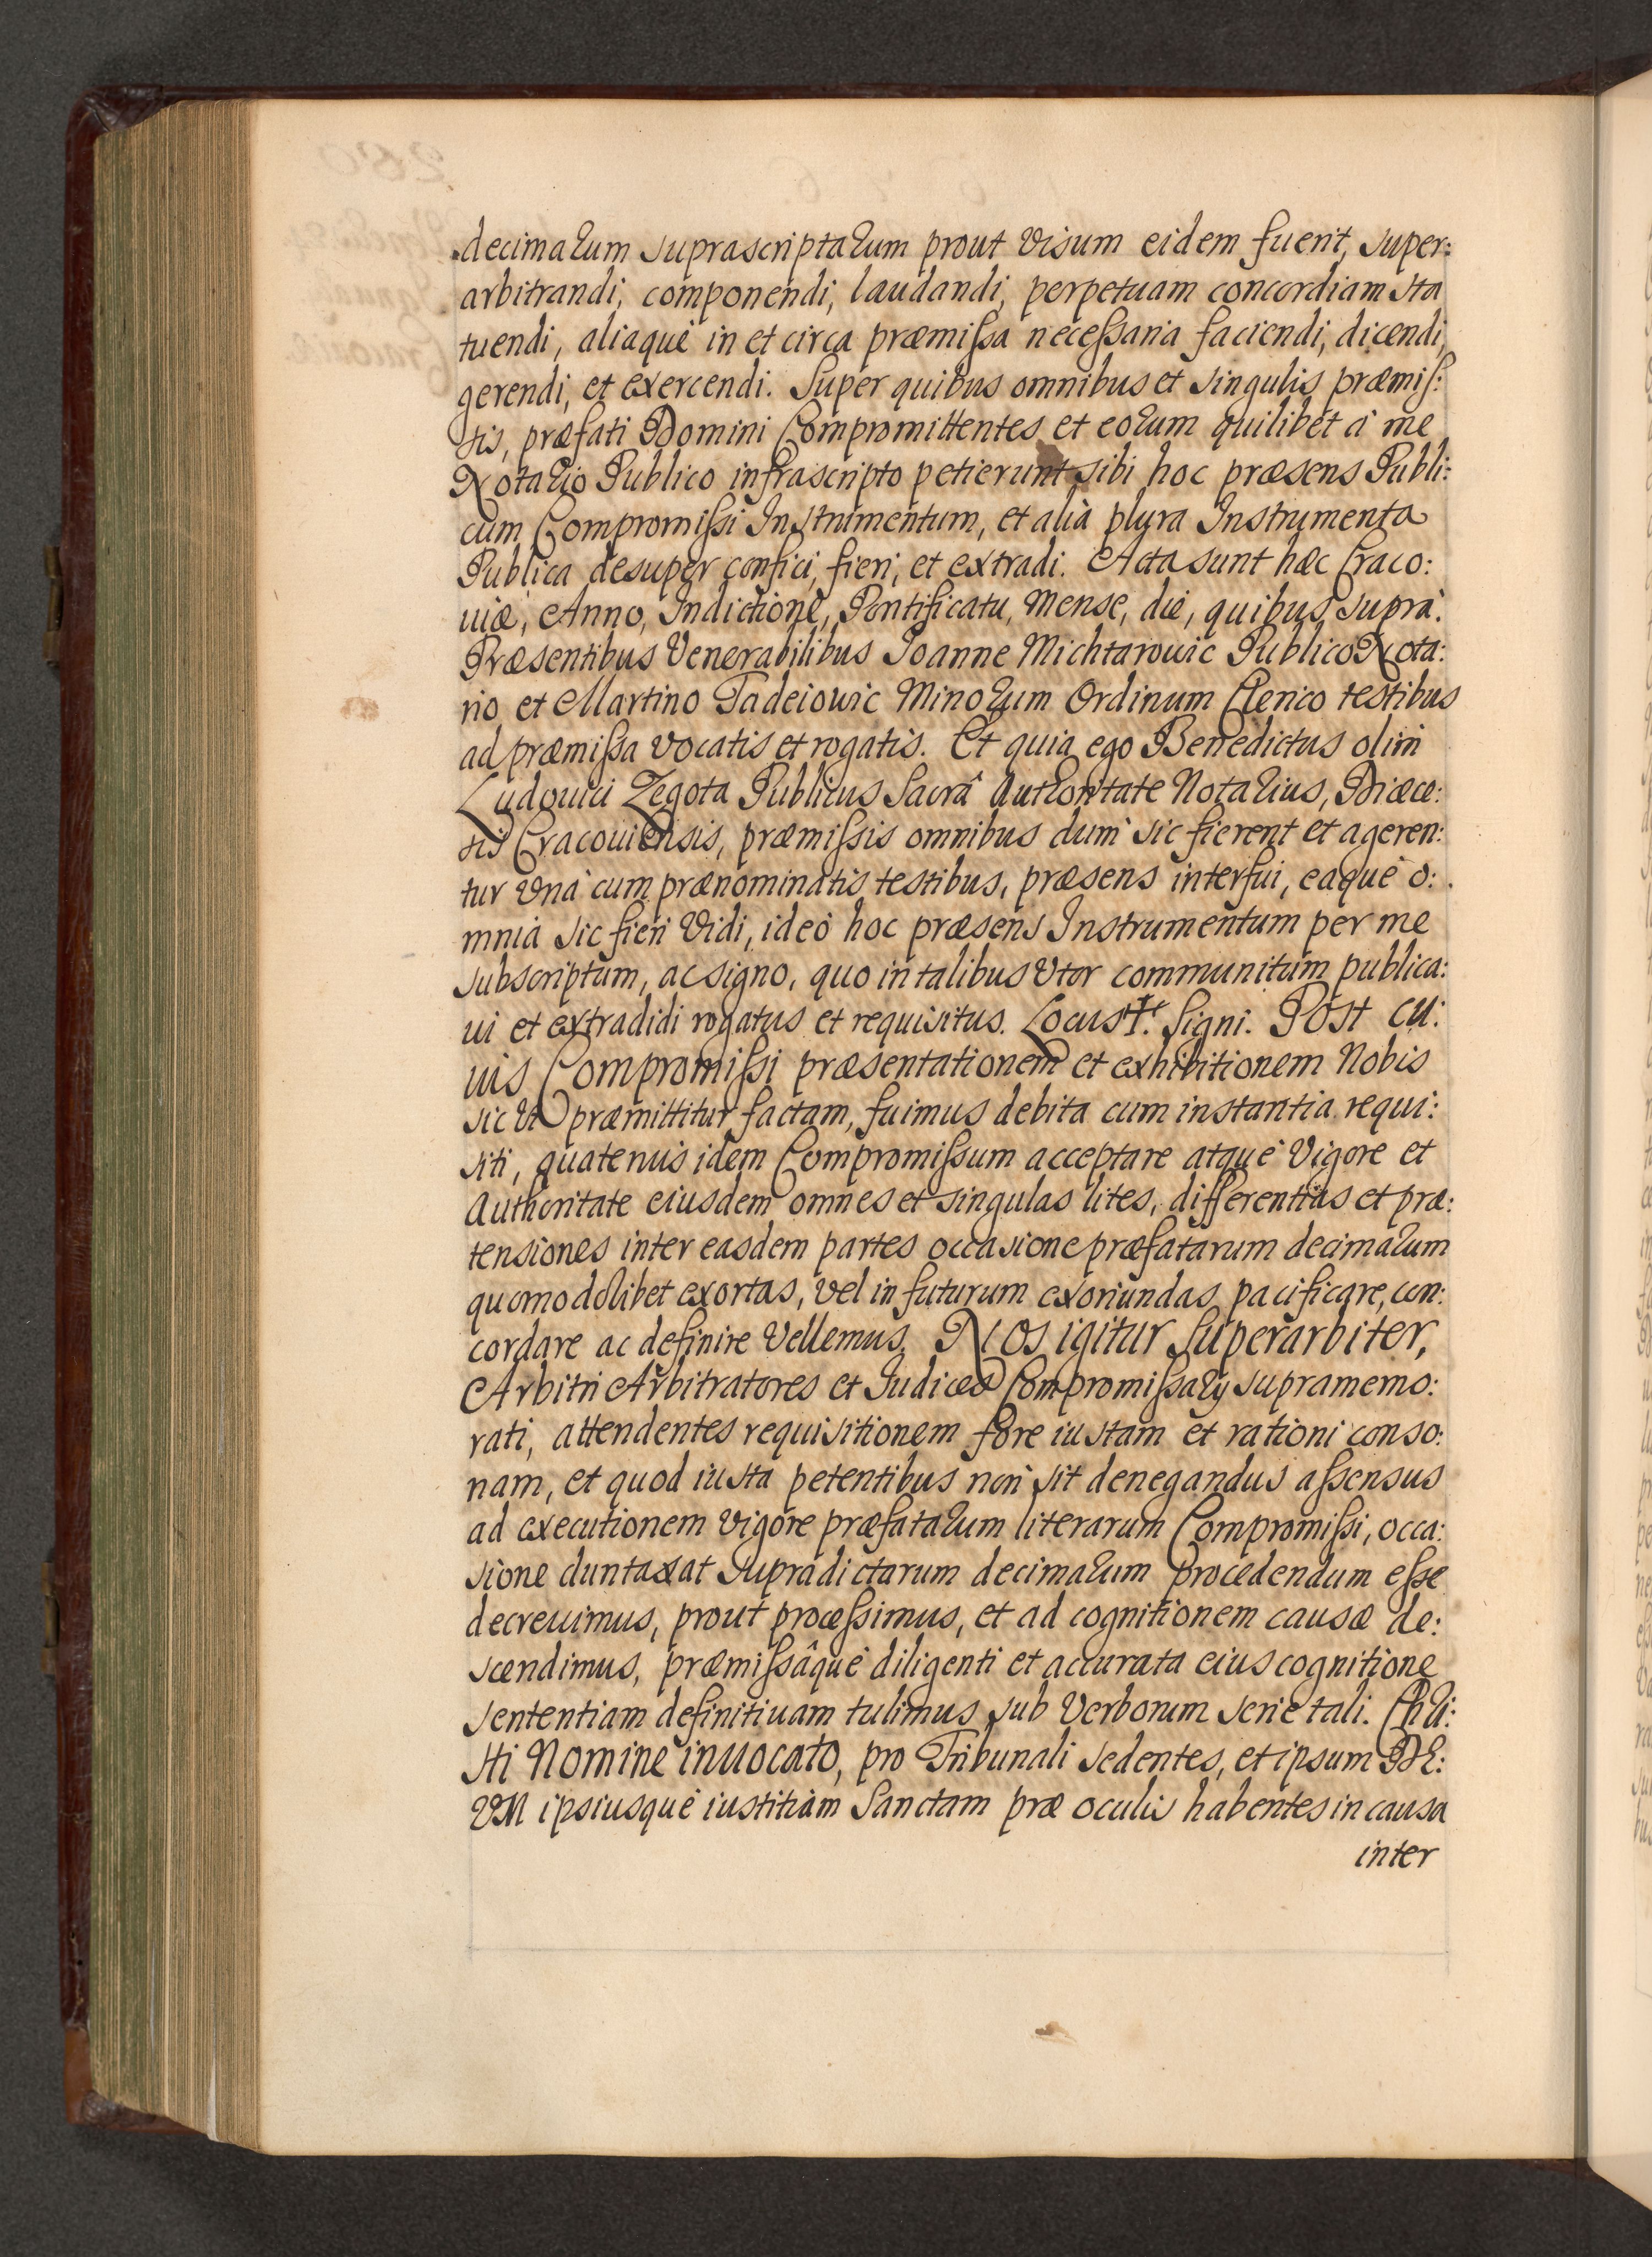 decimarum suprascriptarum prout visum eidem fuerit, super:
arbitrandi, componendi, laudandi, perpetuam concordiam sta
tuendi, aliaque in et circa præmissa necessaria faciendi, dicendi,
gerendi, et exercendi. Super quibus omnibus et singulis præmis:
sis, præfati Domini Compromittentes et eorum quilibet à me
Notario Publico infrascripto petierunt sibi hoc præsens Publi:
cum Compromissi Instrumentum, et alia plura Instrumenta
Publica desuper confici, fieri, et extradi. Acta sunt hæc Craco:
uiæ, Anno, Indictione, Pontificatu, Mense, die, quibus suprà.
Præsentibus Venerabilibus Joanne Michtarouic Publico Nota:
rio et Martino Tadeiouic Minorum Ordinum Clerico testibus
ad præmissa vocatis et rogatis. Et quia ego Benedictus olim
Ludouici Zegota Publicus Sacrâ Authoritate Notarius, Diœce:
sis Cracouiensis, præmissis omnibus dum sic fierent et ageren:
tur vnà cum prænominatis testibus, præsens interfui, eaque o:
mnia sic fieri vidi, ideò hoc præsens Instrumentum per me
subscriptum, ac signo, quo in talibus vtor communitum publica:
ui et extradidi rogatus et requisitus. Locus ✝ Signi. Post cu:
uis Compromissi præsentationem et exhibitionem Nobis
sic vt præmittitur factam, fuimus debita cum instantia requi:
siti, quatenus idem Compromissum acceptare atque vigore et
authoritate eiusdem omnes et singulas lites, differentias et præ:
tensiones inter easdem partes occasione præfatarum decimarum
quomodolibet exortas, vel in futurum exoriundas pacificare, con:
cordare ac definire vellemus. Nos igitur Superarbiter,
Arbitri Arbitratores et Judices Compromissarij supramemo:
rati, attendentes requisitionem fore iustam et rationi conso:
nam, et quod iusta petentibus non sit denegandus assensus
ad executionem vigore præfatarum literarum Compromissi, occa:
sione duntaxat supradictarum decimarum procedendum esse
decreuimus, prout processimus, et ad cognitionem causæ de:
scendimus, præmissâque diligenti et accurata eius cognitione
sententiam definitiuam tulimus sub verborum serie tali. Chri:
sti Nomine inuocato, pro Tribunali sedentes, et ipsum DE:
VM ipsiusque iustitiam Sanctam præ oculis habentes in causa
inter